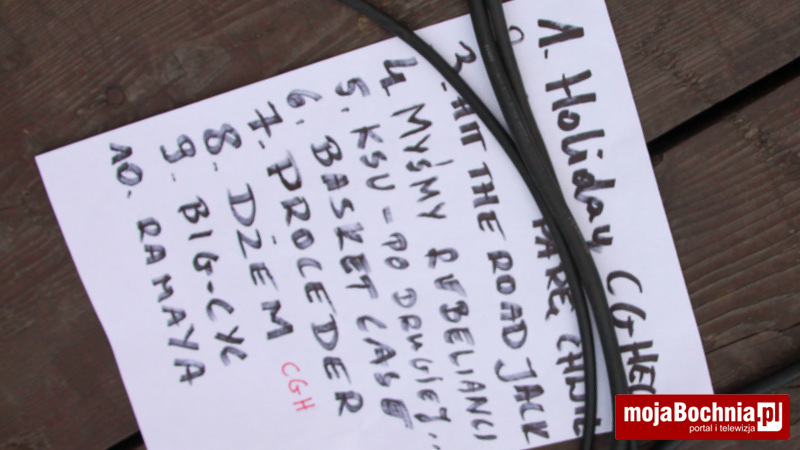 1. Holiday CGHEC
PARĘ CHWIL
3. HIT THE ROAD JACK
4. MYŚMY REBELIANCI
5. KSU - PO DRUGIEJ...
6. BASKET CASE
7. PROCEDER
8. DŻEM CGH
9. BIG-CYC
10. RAMAYA
mojaBochnia.pl
portal i telewizja